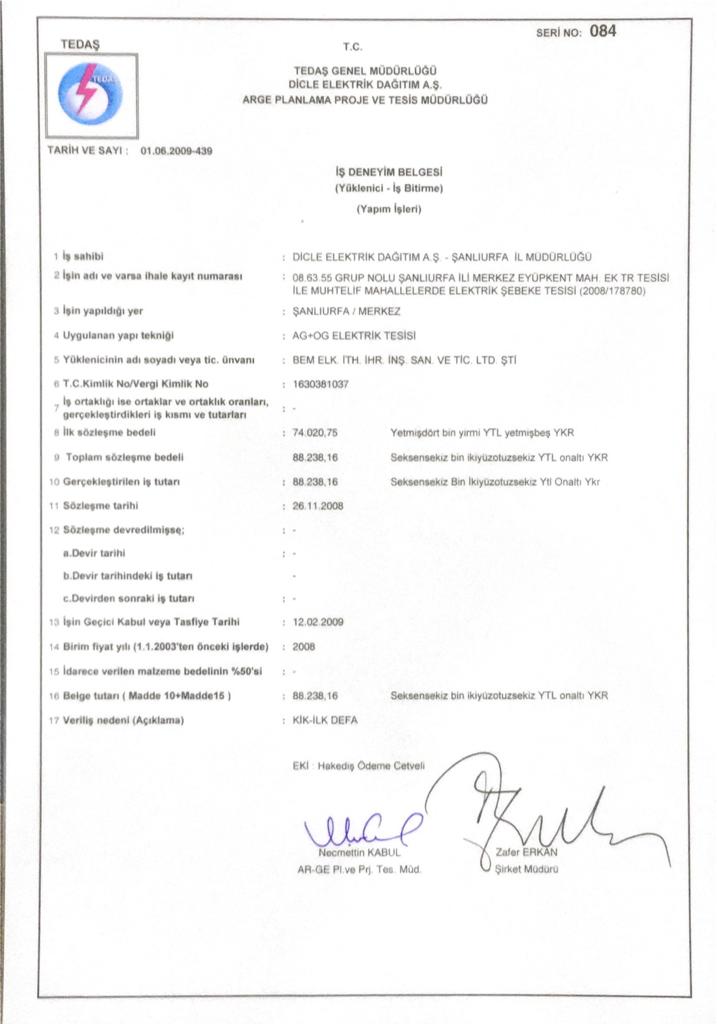 SERİ NO: 084
TEDAŞ
T.C.
TEDAŞ
TEDAŞ GENEL MÜDÜRLÜĞÜ
DİCLE ELEKTRİK DAĞITIM A.Ş.
ARGE PLANLAMA PROJE VE TESİS MÜDÜRLÜĞÜ
TARİH VE SAYI : 01.06.2009-439
İŞ DENEYİM BELGESİ
(Yüklenici - İş Bitirme)
(Yapım İşleri)
1 İş sahibi : DİCLE ELEKTRİK DAĞITIM A.Ş. - ŞANLIURFA İL MÜDÜRLÜĞÜ
2 İşin adı ve varsa ihale kayıt numarası : 08.63.55 GRUP NOLU ŞANLIURFA İLİ MERKEZ EYÜPKENT MAH. EK TR TESİSİ
İLE MUHTELİF MAHALLELERDE ELEKTRİK ŞEBEKE TESİSİ (2008/178780)
3 İşin yapıldığı yer : ŞANLIURFA / MERKEZ
4 Uygulanan yapı tekniği : AG+OG ELEKTRİK TESİSİ
5 Yüklenicinin adı soyadı veya tic. ünvanı : BEM ELK. İTH. İHR. İNŞ. SAN. VE TİC. LTD. ŞTİ
6 T.C.Kimlik No/Vergi Kimlik No : 1630381037
7 İş ortaklığı ise ortaklar ve ortaklık oranları,
gerçekleştirdikleri iş kısmı ve tutarları : -
8 İlk sözleşme bedeli : 74.020,75 Yetmişdört bin yirmi YTL yetmişbeş YKR
9 Toplam sözleşme bedeli 88.238,16 Seksensekiz bin ikiyüzotuzsekiz YTL onaltı YKR
10 Gerçekleştirilen iş tutarı : 88.238,16 Seksensekiz Bin İkiyüzotuzsekiz Ytl Onaltı Ykr
11 Sözleşme tarihi : 26.11.2008
12 Sözleşme devredilmişse; : -
a.Devir tarihi : -
b.Devir tarihindeki iş tutarı -
c.Devirden sonraki iş tutarı : -
13 İşin Geçici Kabul veya Tasfiye Tarihi : 12.02.2009
14 Birim fiyat yılı (1.1.2003'ten önceki işlerde) : 2008
15 İdarece verilen malzeme bedelinin %50'si : -
16 Belge tutarı ( Madde 10+Madde15 ) : 88.238,16 Seksensekiz bin ikiyüzotuzsekiz YTL onaltı YKR
17 Veriliş nedeni (Açıklama) : KİK-İLK DEFA
EKİ : Hakediş Ödeme Cetveli
Necmettin KABUL Zafer ERKAN
AR-GE Pl.ve Prj. Tes. Müd. Şirket Müdürü